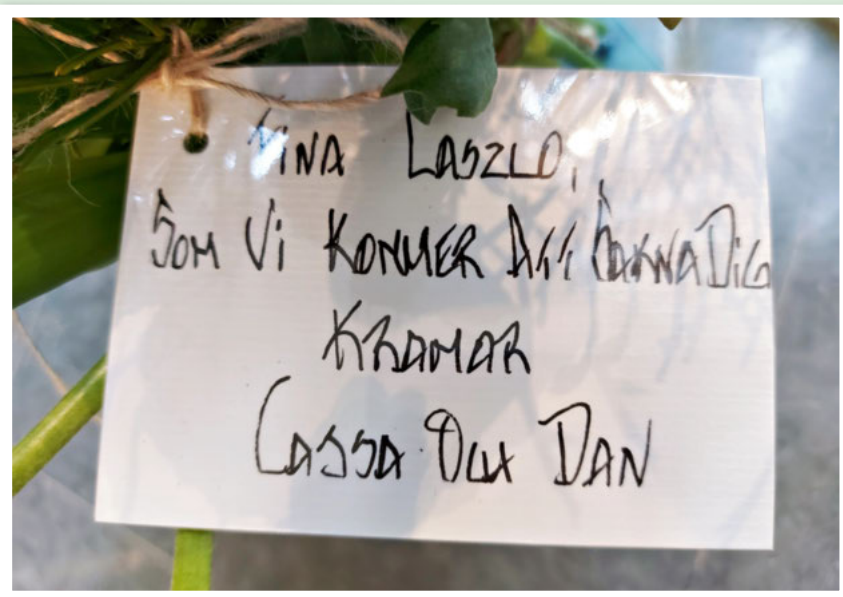 Fina Laszlo,
Som Vi Kommer Att Sakna Dig
Kramar
Cassa Och Dan